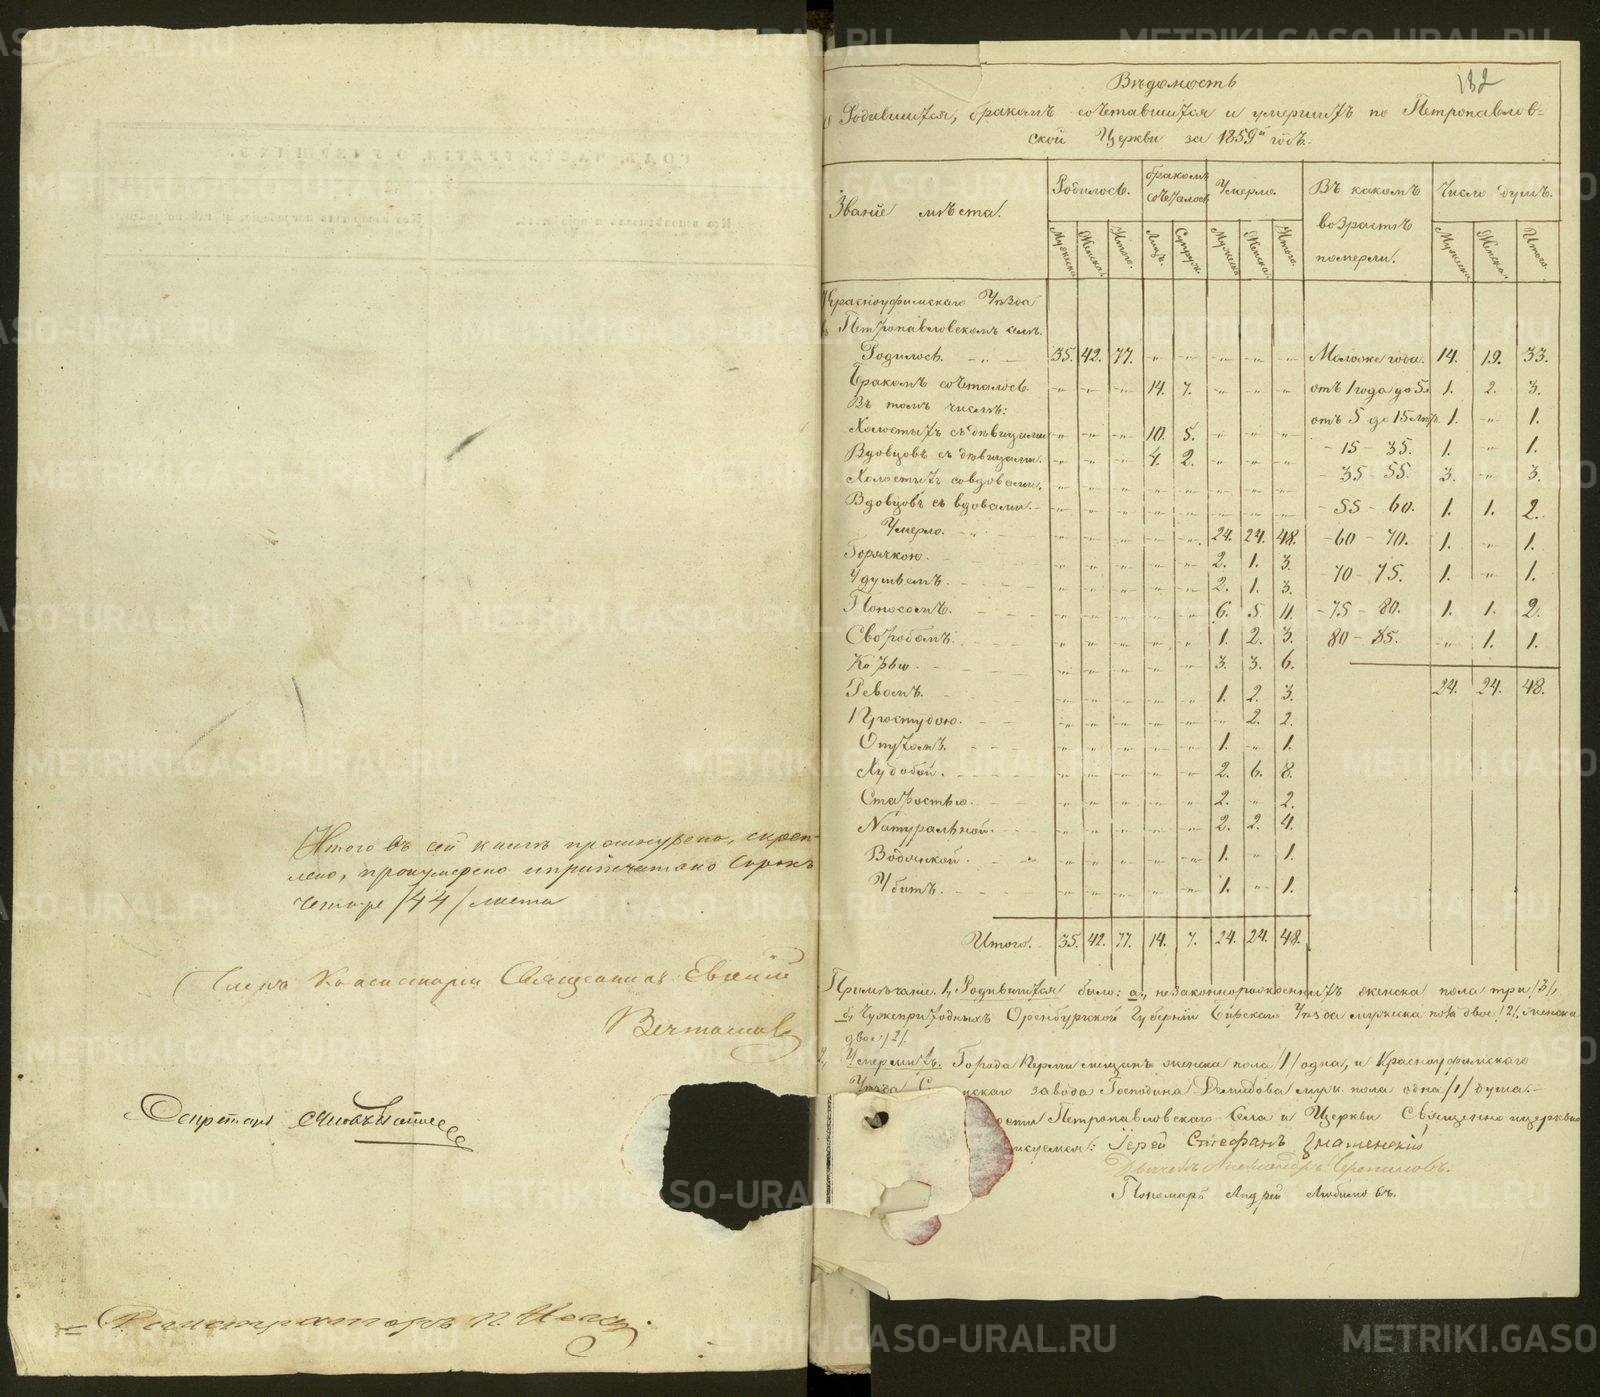 Итого въ сей книгѣ прошнурено, скреп-
лено, пронумерено и припечатано Сорокъ
четыре /44/ листа
Членъ Консисторіи Священникъ Евгеній
Секретарь
Регистраторъ П.
182
Вѣдомость
о Родившихся, бракомъ сочетавшихся и умершихъ по Петропавлов-
ской Церкви за 1859й годъ.
Званіе мѣста. Родилось. бракомъ сочеталось Умерло. Въ какомъ возрастѣ померли. Число душъ.
Мужеска Женска. Итого. Лицъ. Супруж. Мужеска Женска. Итого. Мужеска Женска. Итого.
Красноуфимскаго Уѣзда
въ Петропавловскомъ селѣ.
Родилось. 35. 42. 77. „ „ „ „ „ Моложе года. 14. 19. 33.
Бракомъ сочеталось „ „ „ 14. 7. „ „ „ отъ 1 года до 5 1. 2. 3.
Въ томъ числѣ: отъ 5 до 15 лѣтъ 1. „ 1.
Холостыхъ съ дѣвицами „ „ „ 10. 5. „ „ „ – 15 – 35. 1. „ 1.
Вдовцовъ съ дѣвицами. „ „ „ 4. 2. „ „ „
Холостыхъ со вдовами. „ „ „ „ „ „ „ „ – 35 – 55. 3. „ 3.
Вдовцовъ съ вдовами. „ „ „ „ „ „ „ „ – 55 – 60. 1. 1. 2.
Умерло. „ „ „ „ „ 24. 24. 48. – 60 – 70. 1. „ 1.
Горячкою. „ „ „ „ „ 2. 1. 3.
Удушьемъ. „ „ „ „ „ 2. 1. 3. – 70 – 75. 1. „ 1.
Поносомъ. „ „ „ „ „ 6. 5. 11. – 75 – 80. 1. 1. 2.
Своробомъ. „ „ „ „ „ 1. 2. 3. 80 – 85. „ 1. 1.
Корью. „ „ „ „ „ 3. 3. 6.
Ревомъ. „ „ „ „ „ 1. 2. 3. 24. 24. 48.
Простудою. „ „ „ „ „ „ 2. 2.
Опухомъ. „ „ „ „ „ 1. „ 1.
Худобой. „ „ „ „ „ 2. 6. 8.
Старостью. „ „ „ „ „ 2. „ 2.
Натуральной. „ „ „ „ „ 2. 2. 4.
Водянкой. „ „ „ „ „ 1. „ 1.
Убитъ. „ „ „ „ „ 1. „ 1.
Итого. 35. 42. 77. 14. 7. 24. 24. 48.
Примѣчаніе. 1, Родившихся было: а, незаконнорожденныхъ женска пола три /3/,
б, Чужеприходныхъ Оренбургской Губерніи Бирскаго Уѣзда мужеска пола двое /2/, женска
двое /2/.
2, Умершихъ. Города Перми мещанъ женска пола /1/ одна, и Красноуфимскаго
Уѣзда скаго завода Господина Демидова муж. пола одна /1/ душа.–
Петропавловскаго Села и Церкви Священно и церковно
Іерей Стефанъ Знаменскій
Дьяконъ Александръ
Пономарь Андрей Любимовъ.
METRIKI.GASO-URAL.RU